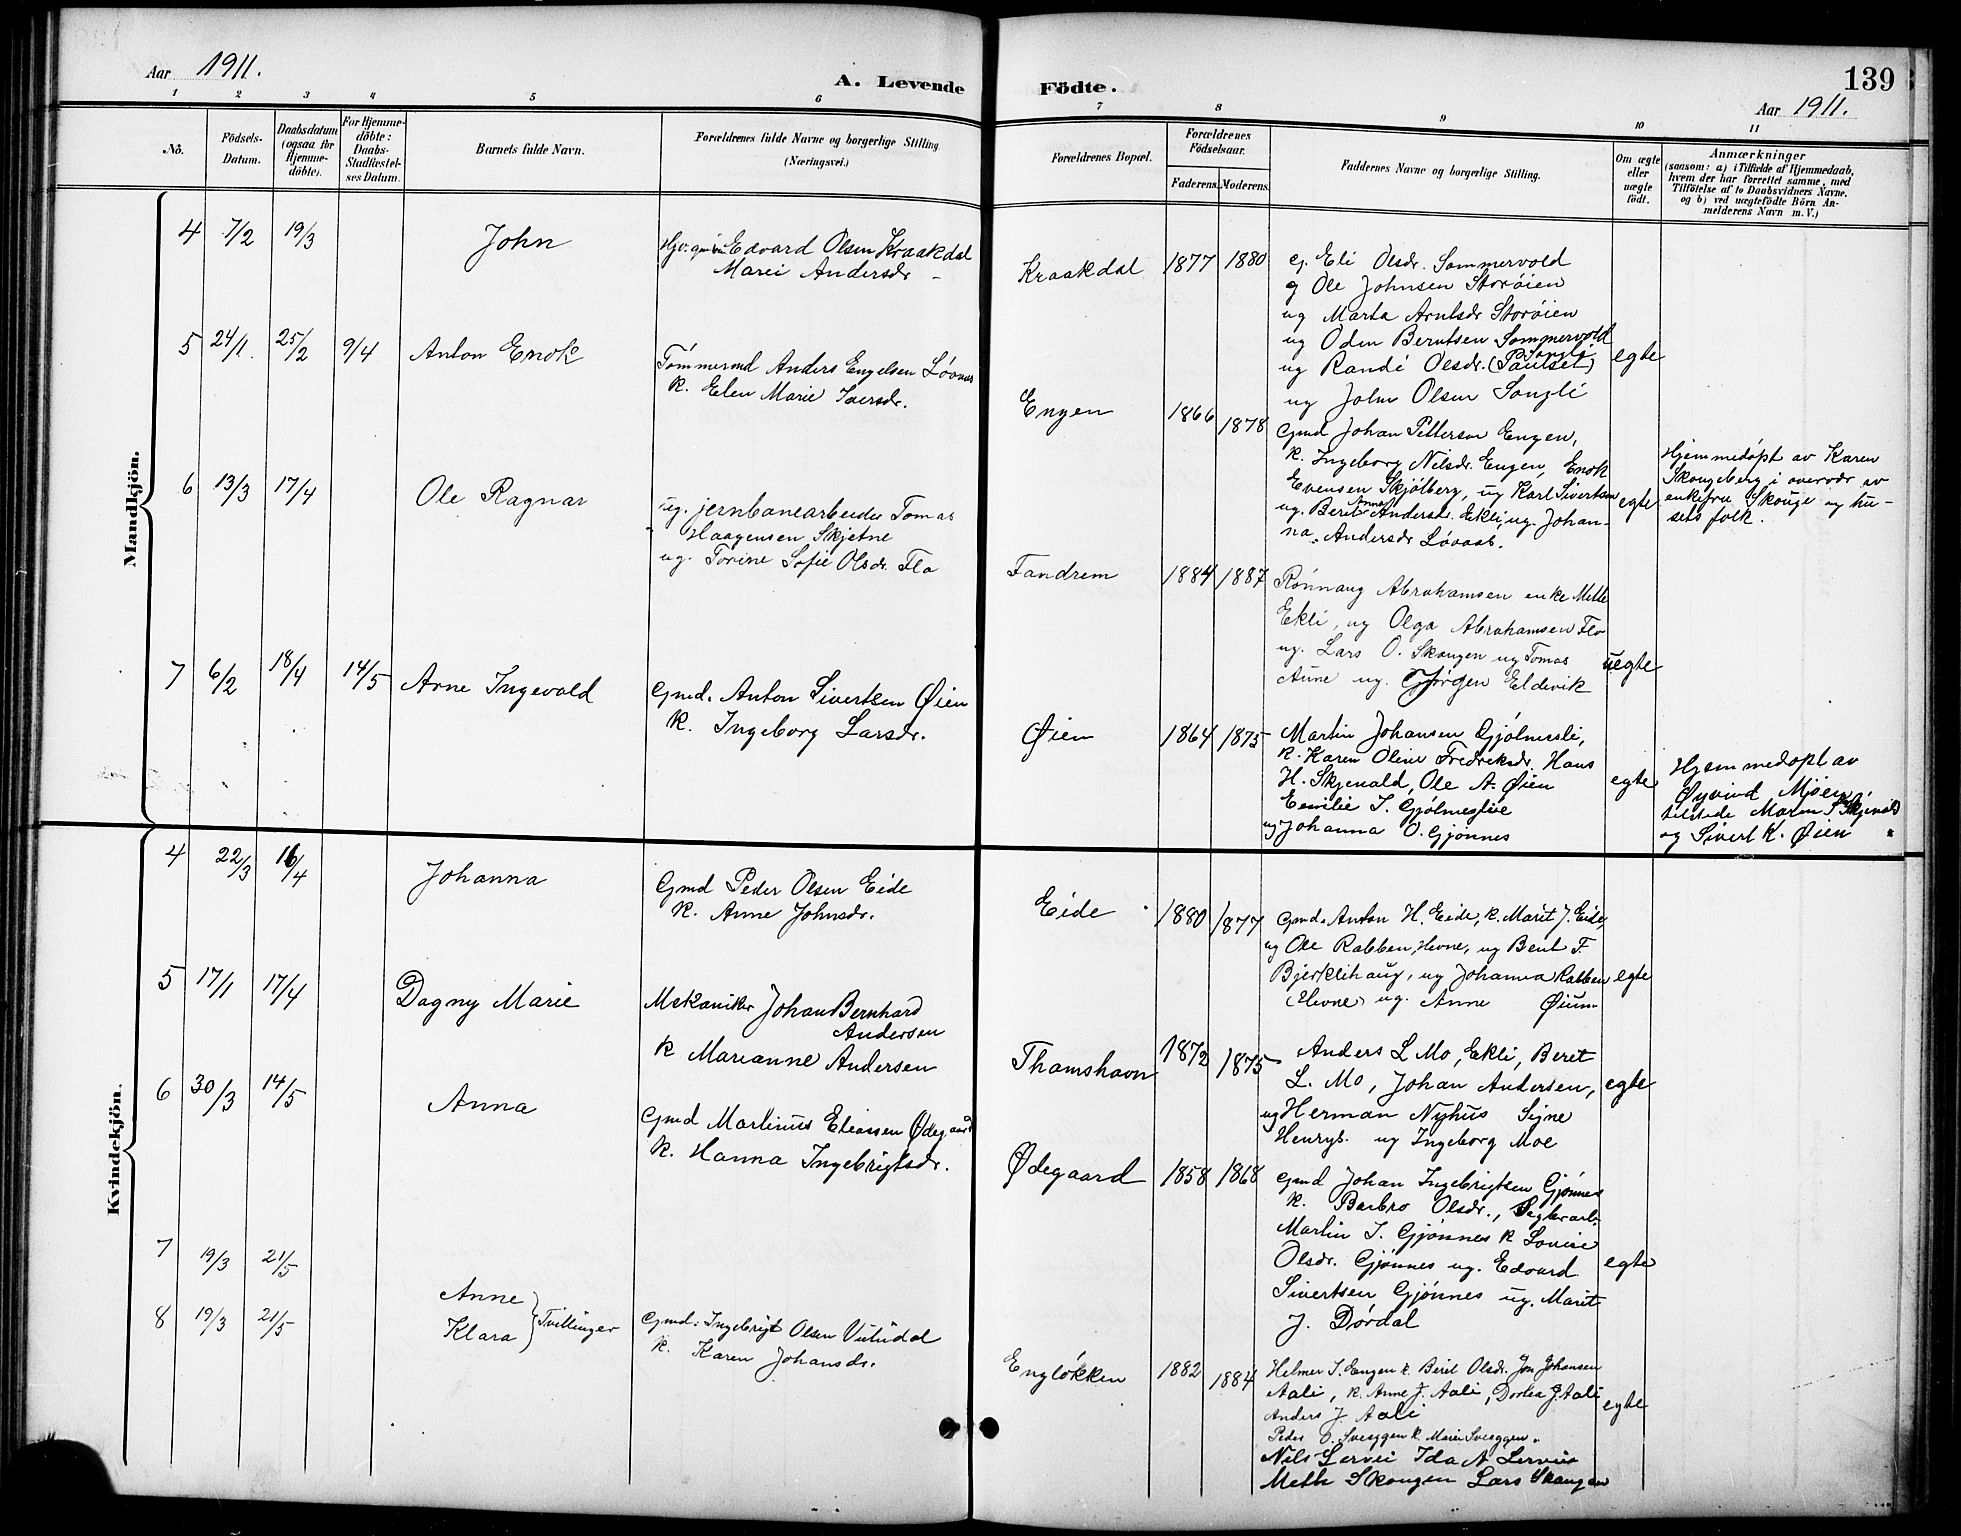 Aar 1911.
A. Levende
Födte.
139
Aar 1911.
1 2 3 4 5 6 7 8 9 10 11
Nö.
Födsels-
Datum.
Daabsdatum
(ogsaa for
Hjemme-
döbte).
For Hjemme-
döbte:
Daabs-
Stadfæstel-
ses Datum.
Barnets fulde Navn.
Forældrenes fulde Navne og borgerlige Stilling.
(Næringsvei.)
Forældrenes Bopæl.
Forældrenes
Födselsaar.
Faderens.
Moderens.
Faddernes Navne og borgerlige Stilling.
Om ægte
eller
uægte
födt.
Anmærkninger
(saasom: a) i Tilfælde af Hjemmedaab,
hvem der har forrettet samme, med
Tilföielse af to Daabsvidners Navne.
og b) ved uægtefödte Börn An-
melderens Navn m. V.)
Mandkjön.
4 7/2 19/3 John
Edvard Olsen Kraakdal
Marei Andersdr
Kraakdal 1877 1880
g. Eli Olsdr. Sommervold
g Ole Johnsen Storøien
ug Marta Arntsdr Storøien
ug Oden Berntsen Sommervold
ug Randi Olsdr. (Paulset) Songli
ug John Olsen Songli
egte
5 24/1. 25/2 9/4 Anton Enok
Tømmermd Anders Engelsen Løvaas
K. Elen Marie Iversdr.
Engen 1866 1878
Gmd Johan Pettersen Engen,
K. Ingeborg Nilsdr. Engen, Enok
Evensen Skjølberg, ug Karl Sivertsen
ug. Berit Anna Andersdr. Ekli, ug. Johan-
na Andersdr Løvaas.
egte
Hjemmedøpt av Karen
Skongeberg i overvær av
enkefru Skouge og hu-
sets folk.
6 13/3 17/4 Ole Ragnar
ug. jernbanearbeider Tomas
Haagensen Skjetne
ug. Torine Sofie Olsdr. Flo
Fandrem 1884 1887
Rønnaug Abrahamsen enke Mette
Ekli, ug Olga Abrahamsen Flo
ug. Lars O. Skongen ug Tomas
Aune ug. Jørgen Eldevik
uegte
7 6/2 18/4 14/5 Arne Ingevald
Gmd. Anton Sivertsen Øien
K. Ingeborg Larsdr.
Øien 1864 1875
Martin Johansen Gjølmesli,
K. Karen Oline Fredriksdr. Hans
H. Skjenald, Ole A. Øien
Emilie J. Gjølmeslie
ug Johanna O. Gjønnes
egte
Hjemmedøpt av
Øyvind Mjøen
tilstede Maren S Skjenald
og Sivert K. Øien
Kvindekjön.
4 22/3 16/4 Johanna
Gmd Peder Olsen Eide
K. Anne Johnsdr.
Eide 1880 1877
Gmd. Anton H. Eide, K. Marit J. Eide,
ug Ole Rabben, Hevne, ug Bent F.
Bjerklihaug, ug Johanna Rabben
(Hevne) ug. Anne Øium
egte
5 17/1 17/4 Dagny Marie
Mekaniker Johan Bernhard
Andersen
K Marianne Andersen
Thamshavn 1872 1875
Anders L Mo, Ekli, Beret
L. Mo, Johan Andersen,
ug Herman Nyhus Signe
Henrys. ug Ingeborg Moe
egte
6 30/3 14/5 Anna
Gmd Martinus Eliassen Ødegaard
K. Hanna Ingebrigtsdr.
Ødegaard 1858 1868
Gmd Johan Ingebrigtsen Gjønnes
K. Barbro Olsdr.,
Martin I. Gjønnes K Lovise
Olsdr. Gjønnes ug. Edvard
Sivertsen Gjønnes ug. Marit
J. Dørdal
egte
7 19/3 21/5 Anne
8 19/3 21/5 Klara } Tvillinger
Gmd. Ingebrigt Olsen Vuludal
K. Karen Johansdr.
Engløkken 1882 1884
Helmer I. Engen K. Berit Olsdr. Jon Johansen
Aali, K. Anne J. Aali, Dortea J. Aali
Anders J. Aali
Peder O. Sveeggen K. Marie Sveeggen.
Nils Lervei Ida A Lervei
Mette Skongen Lars Skongen
egte